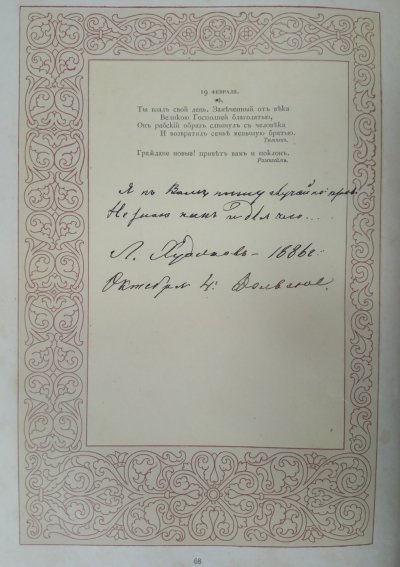 19 ФЕВРАЛЯ.
Ты взялъ свой день. Замѣченный отъ вѣка
Великою Господней благодатью,
Онъ рабскій образъ сдвинулъ съ человѣка
И возвратилъ семьѣ меньшую братью.
Тютчевъ.
Граждане новые! привѣтъ вамъ и поклонъ.
Розенгеймъ.
Я къ Вамъ пишу случайно право
Не знаю какъ и для чего...
Л. 1886 г.
Октября 4:
68